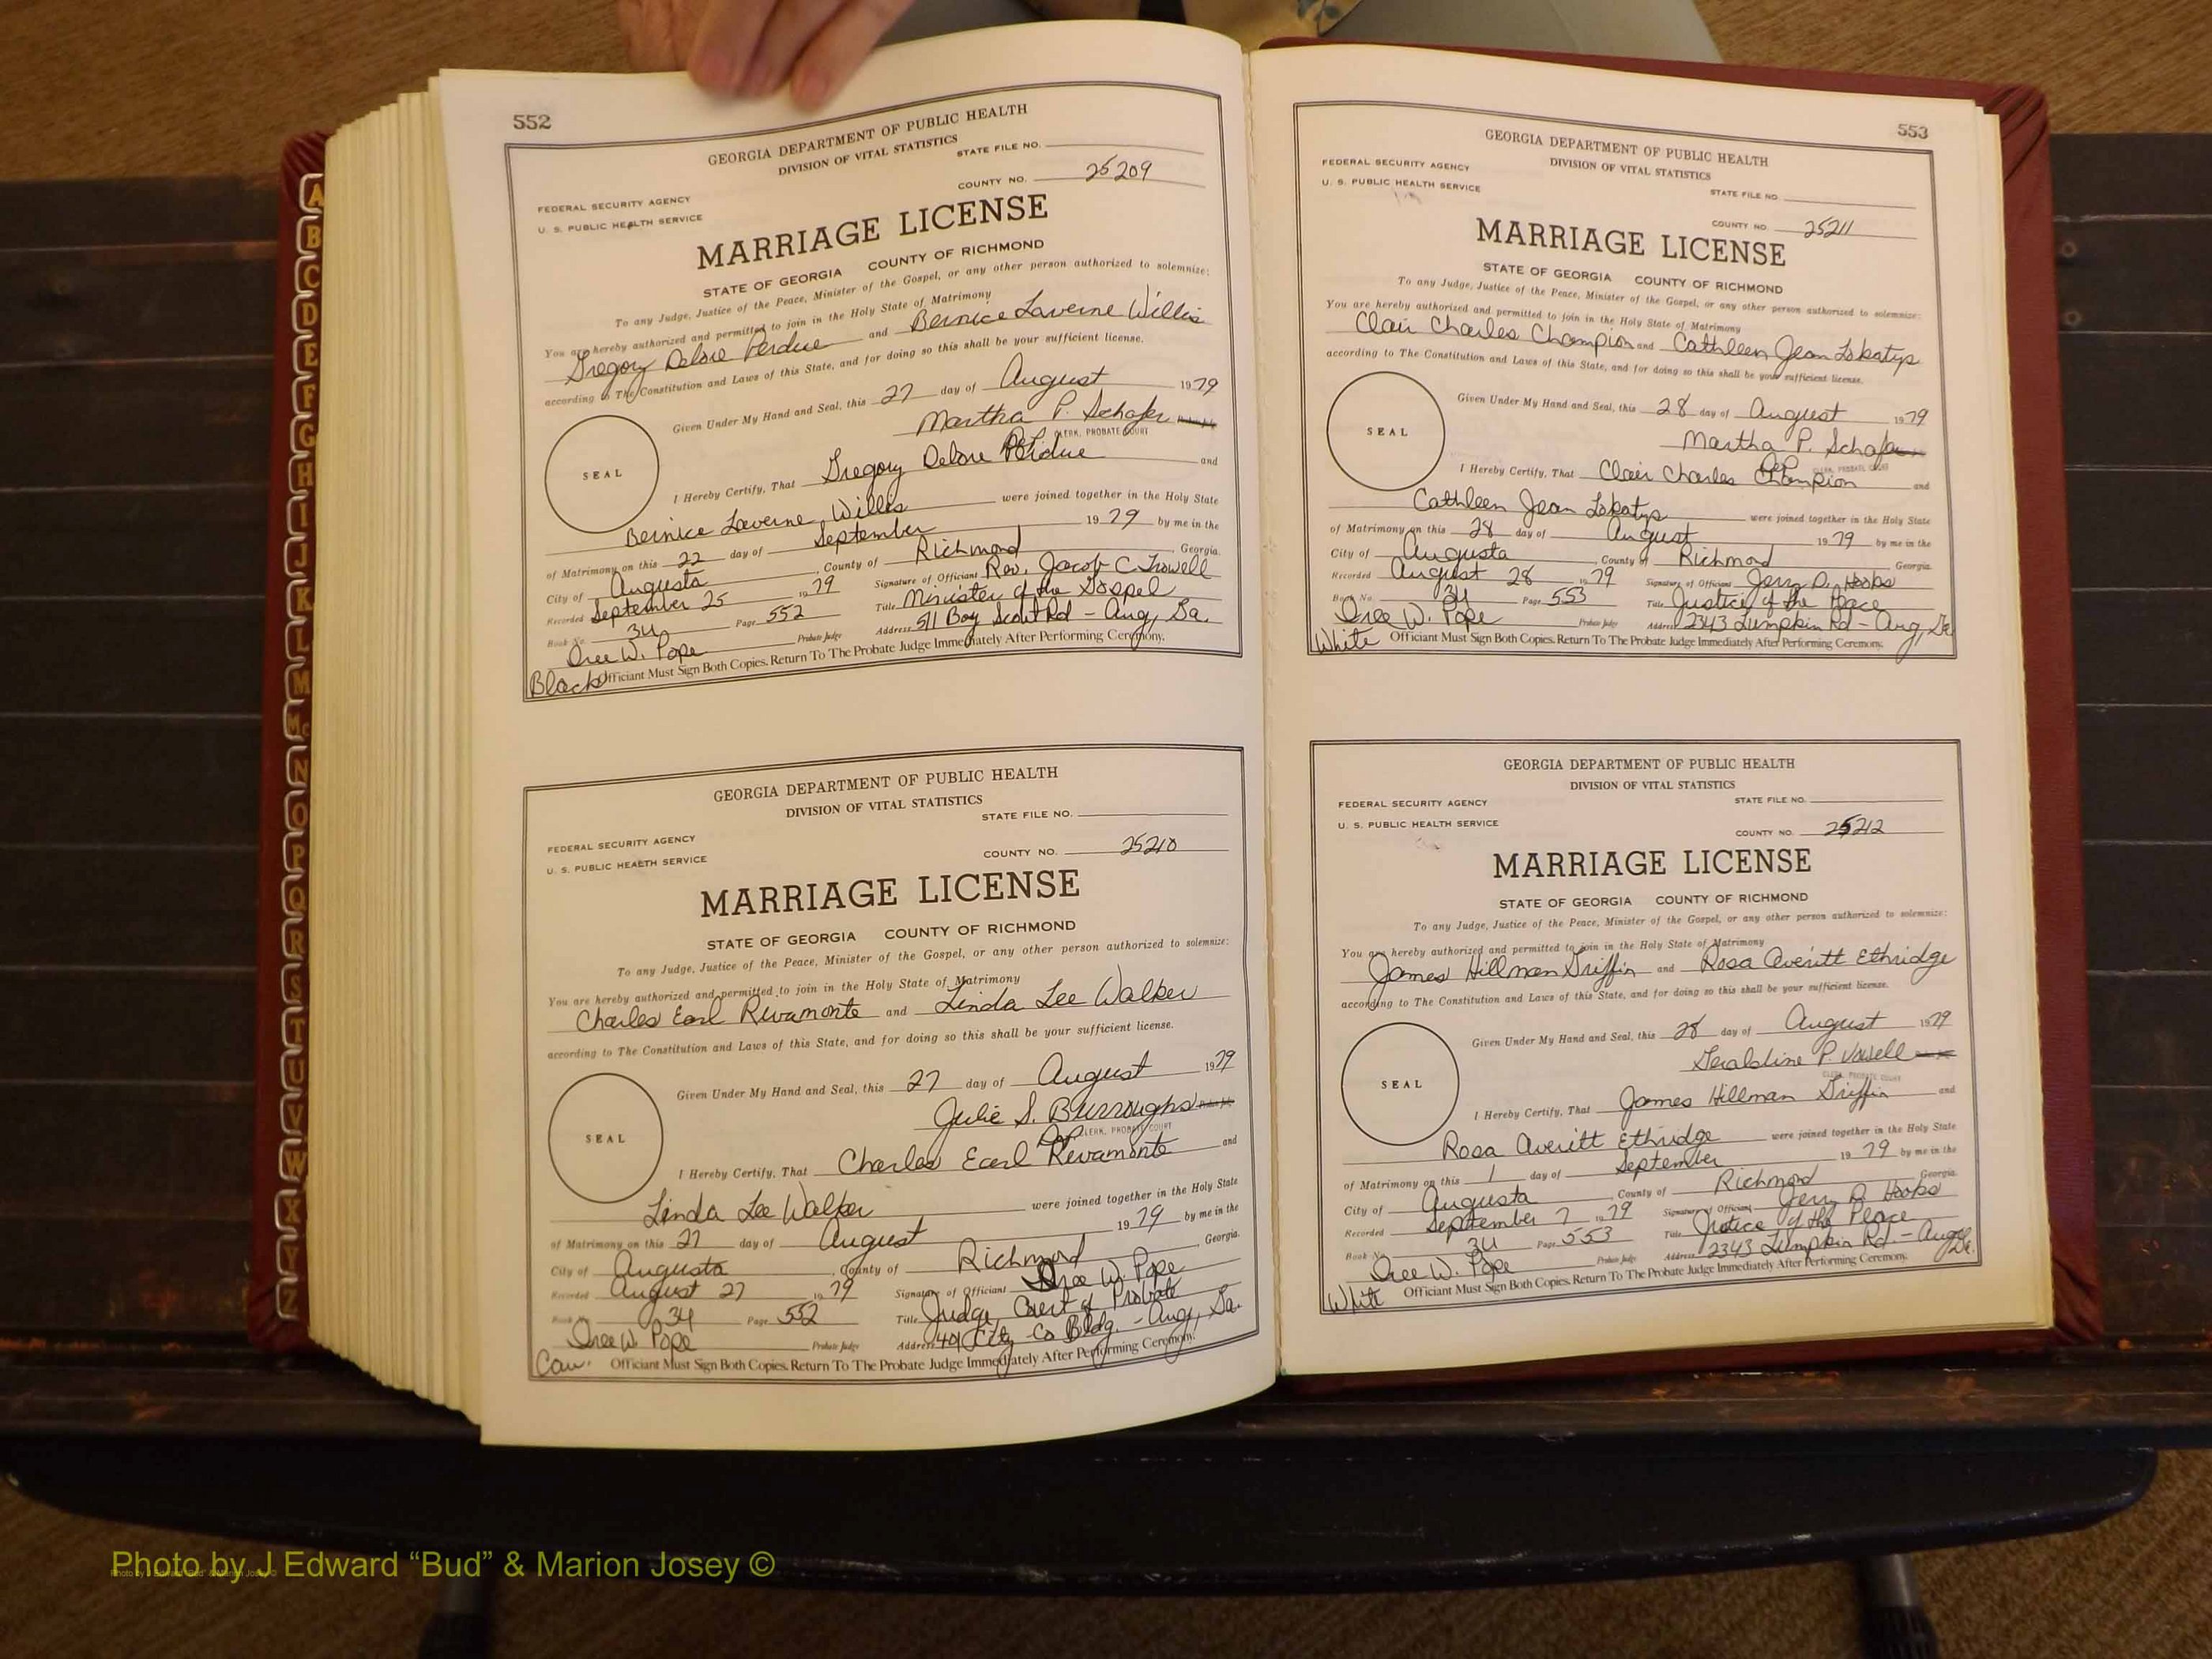 552
GEORGIA DEPARTMENT OF PUBLIC HEALTH
DIVISION OF VITAL STATISTICS
STATE FILE NO.
COUNTY NO. 25209
FEDERAL SECURITY AGENCY
U. S. PUBLIC HEALTH SERVICE
MARRIAGE LICENSE
STATE OF GEORGIA COUNTY OF RICHMOND
To any Judge, Justice of the Peace, Minister of the Gospel, or any other person authorized to solemnize:
You are hereby authorized and permitted to join in the Holy State of Matrimony
Gregory Delore Perdue and Bernice Laverne Willis
according to The Constitution and Laws of this State, and for doing so this shall be your sufficient license.
Given Under My Hand and Seal, this 27 day of August 1979
Martha P. Schafer
CLERK, PROBATE COURT
SEAL
I Hereby Certify, That Gregory Delore Perdue and
Bernice Laverne Willis were joined together in the Holy State
of Matrimony on this 22 day of September 1979 by me in the
City of Augusta, County of Richmond, Georgia.
Recorded September 25 1979 Signature of Officiant Rev. Jacob C. Trowell
Book No. 34 Page 552 Title Minister of the Gospel
Oree W. Pope Probate Judge Address 511 Boy Scout Rd - Aug, Ga.
Black Officiant Must Sign Both Copies. Return To The Probate Judge Immediately After Performing Ceremony.
GEORGIA DEPARTMENT OF PUBLIC HEALTH
DIVISION OF VITAL STATISTICS
STATE FILE NO.
FEDERAL SECURITY AGENCY
U. S. PUBLIC HEALTH SERVICE
COUNTY NO. 25210
MARRIAGE LICENSE
STATE OF GEORGIA COUNTY OF RICHMOND
To any Judge, Justice of the Peace, Minister of the Gospel, or any other person authorized to solemnize:
You are hereby authorized and permitted to join in the Holy State of Matrimony
Charles Earl Revamonte and Linda Lee Walker
according to The Constitution and Laws of this State, and for doing so this shall be your sufficient license.
Given Under My Hand and Seal, this 27 day of August 1979
Julie S. Burroughs
CLERK, PROBATE COURT
SEAL
I Hereby Certify, That Charles Earl Revamonte and
Linda Lee Walker were joined together in the Holy State
of Matrimony on this 27 day of August 1979 by me in the
City of Augusta, County of Richmond, Georgia.
Recorded August 27 1979 Signature of Officiant Oree W. Pope
Book No. 34 Page 552 Title Judge, Court of Probate
Oree W. Pope Probate Judge Address 401 City-Co Bldg. - Aug, Ga.
Cau. Officiant Must Sign Both Copies. Return To The Probate Judge Immediately After Performing Ceremony.
553
GEORGIA DEPARTMENT OF PUBLIC HEALTH
DIVISION OF VITAL STATISTICS
FEDERAL SECURITY AGENCY
U. S. PUBLIC HEALTH SERVICE
STATE FILE NO.
COUNTY NO. 25211
MARRIAGE LICENSE
STATE OF GEORGIA COUNTY OF RICHMOND
To any Judge, Justice of the Peace, Minister of the Gospel, or any other person authorized to solemnize:
You are hereby authorized and permitted to join in the Holy State of Matrimony
Clair Charles Champion and Cathleen Jean Lokatys
according to The Constitution and Laws of this State, and for doing so this shall be your sufficient license.
Given Under My Hand and Seal, this 28 day of August 1979
Martha P. Schafer
CLERK, PROBATE COURT
SEAL
I Hereby Certify, That Clair Charles Champion and
Cathleen Jean Lokatys were joined together in the Holy State
of Matrimony on this 28 day of August 1979 by me in the
City of Augusta, County of Richmond Georgia.
Recorded August 28 1979 Signature of Officiant Jerry D. Hobbs
Book No. 34 Page 553 Title Justice of the Peace
Oree W. Pope Probate Judge Address 2343 Lumpkin Rd - Aug, Ga.
White Officiant Must Sign Both Copies. Return To The Probate Judge Immediately After Performing Ceremony.
GEORGIA DEPARTMENT OF PUBLIC HEALTH
DIVISION OF VITAL STATISTICS
FEDERAL SECURITY AGENCY
STATE FILE NO.
U. S. PUBLIC HEALTH SERVICE
COUNTY NO. 25212
MARRIAGE LICENSE
STATE OF GEORGIA COUNTY OF RICHMOND
To any Judge, Justice of the Peace, Minister of the Gospel, or any other person authorized to solemnize:
You are hereby authorized and permitted to join in the Holy State of Matrimony
James Hillman Griffin and Rosa Averitt Ethridge
according to The Constitution and Laws of this State, and for doing so this shall be your sufficient license.
Given Under My Hand and Seal, this 28 day of August 1979
Geraldine P. Vowell
CLERK, PROBATE COURT
SEAL
I Hereby Certify, That James Hillman Griffin and
Rosa Averitt Ethridge were joined together in the Holy State
of Matrimony on this 1 day of September 1979 by me in the
City of Augusta, County of Richmond Georgia.
Recorded September 7 1979 Signature of Officiant Jerry D. Hobbs
Book No. 34 Page 553 Title Justice of the Peace
Oree W. Pope Probate Judge Address 2343 Lumpkin Rd. - Aug, Ga.
White Officiant Must Sign Both Copies. Return To The Probate Judge Immediately After Performing Ceremony.
A
B
C
D
E
F
G
H
I
J
K
L
M
Mc
N
O
P
Q
R
S
T
U
V
W
X
Y
Z
Photo by J Edward “Bud” & Marion Josey ©
Photo by J Edward "Bud" & Marion Josey ©